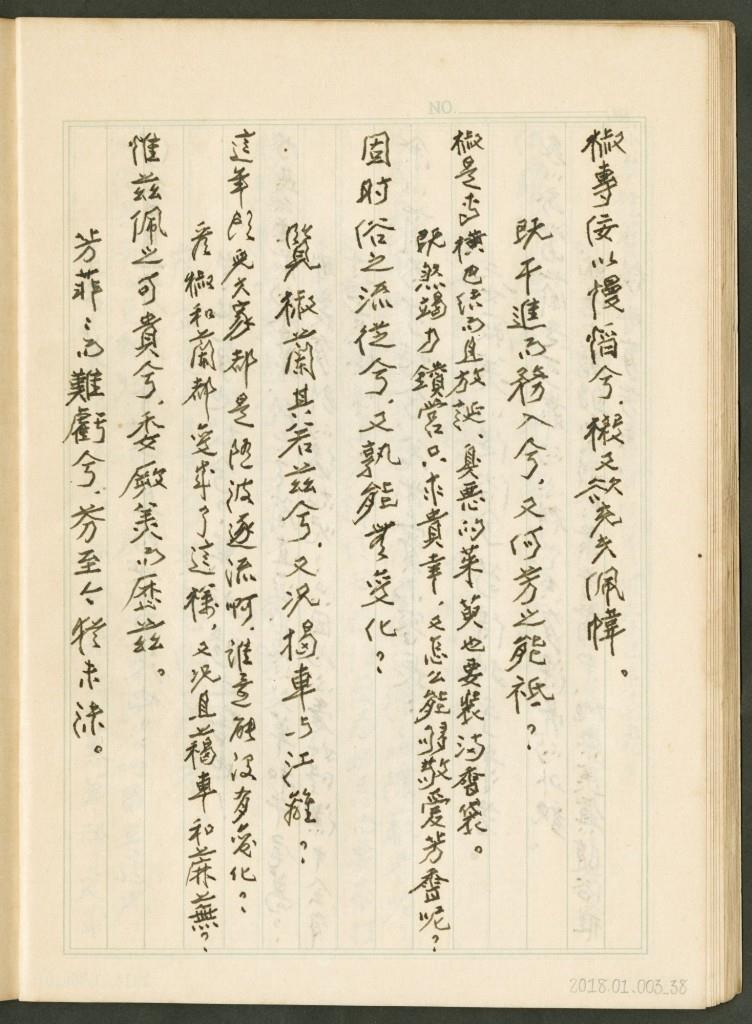 椒專佞以慢慆兮．樧又欲充夫佩幃。
既干進而務入兮．又何芳之能祗？
椒是專橫巴結而且放誕、臭惡的茱萸也要裝滿香袋。
既然竭力鑽營只求貴幸，又怎么能够敬愛芳香呢？
固时俗之流從兮．又孰能無變化？
覽椒蘭其若茲兮．又况揭車与江離？
這年头兒大家都是随波逐流啊．誰還能没有变化？
看椒和蘭都变成了這樣．又况且藒車和蘼蕪？
惟茲佩之可貴兮．委厥美而歷茲。
芳菲〻而難虧兮．芬至今猶未沬。
NO.
2018.01.003_38